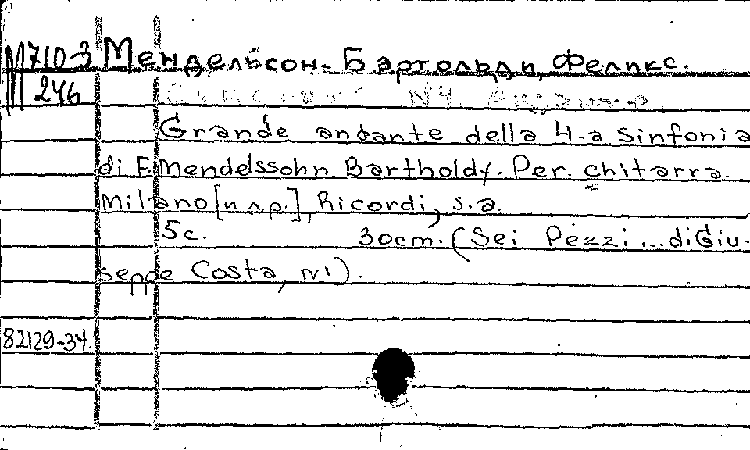 М710-3 Мендельсон-Бартольди, Феликс.
246 № 4.
Grande andante della 4-a Sinfonia
di F. Mendelssohn Bartholdy. Per chitarra.
Milano [n.s.p.], Ricordi, s.a.
5c. 30cm. (Sei Pezzi... di Giu-
seppe Costa, N1).
82129-34.